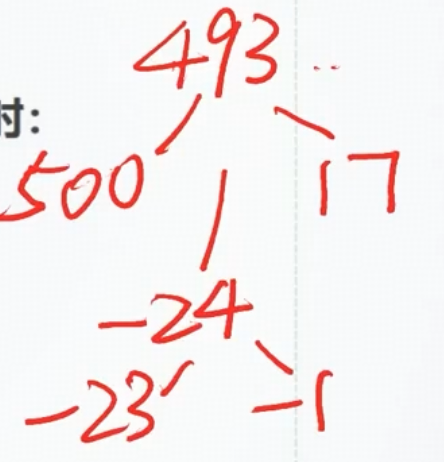 493 ..
时：
500 17
-24
-23 -1